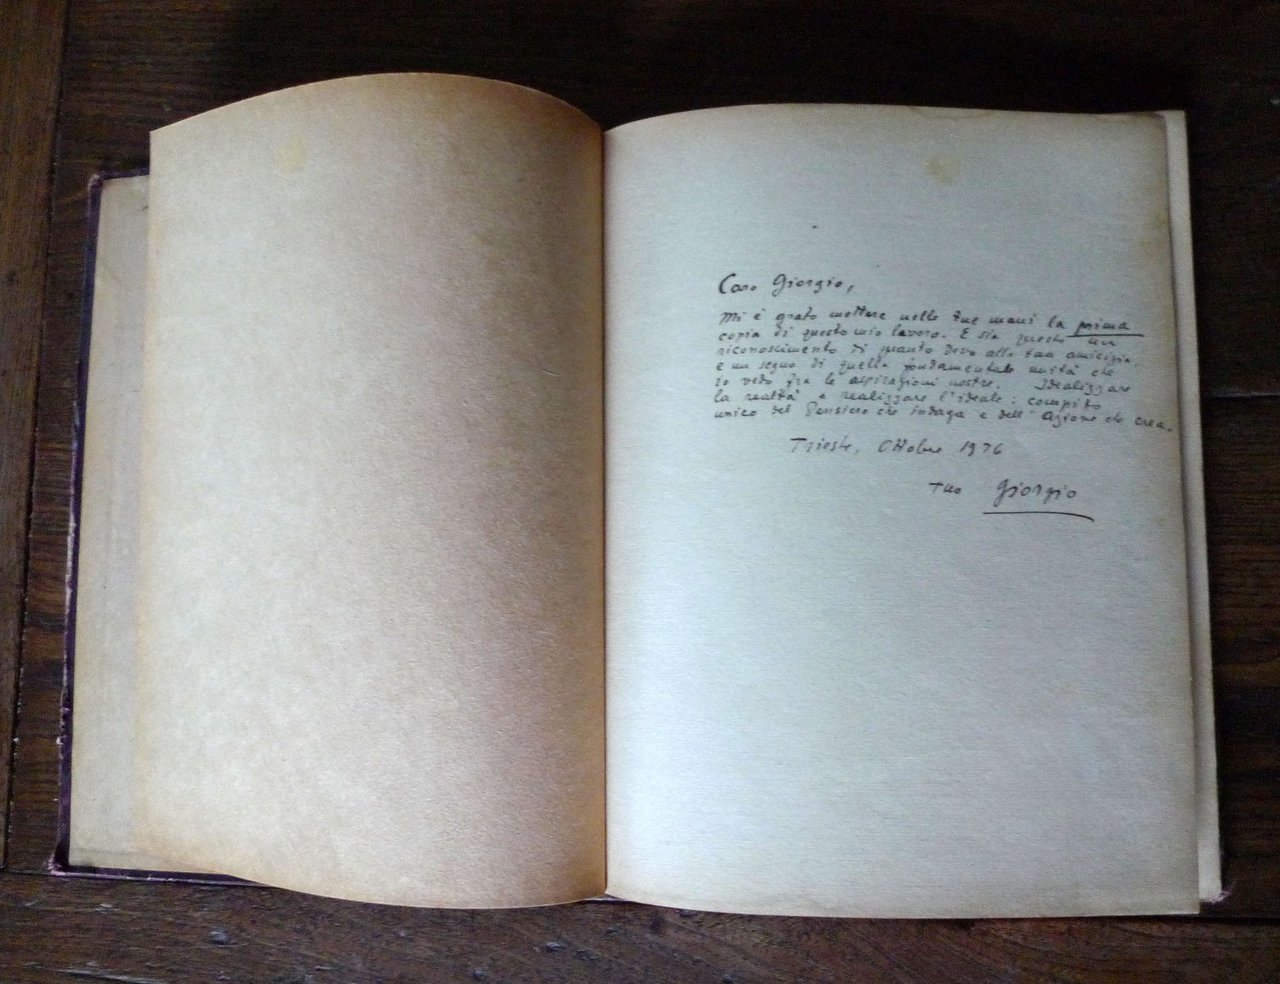 Caro Giorgio,
Mi è grato mettere nelle tue mani la prima
copia di questo mio lavoro. E sia questo un
riconoscimento di quanto devo alla tua amicizia,
e un segno di quella fondamentale unità che
io vedo fra le aspirazioni nostre. Idealizzare
la realtà e realizzare l'ideale: compito
unico del Pensiero che indaga e dell'Azione che crea.
Trieste, Ottobre 1976
tuo Giorgio